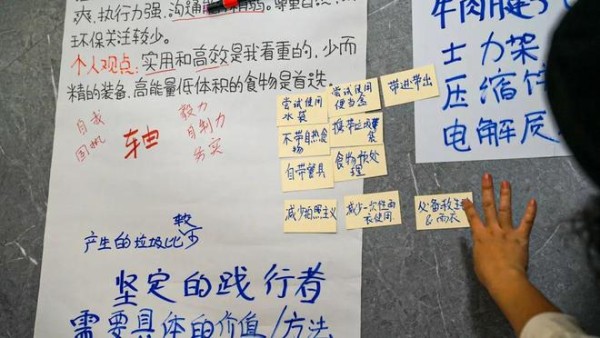 爽、执行力强、沟通
环保关注较少。
个人观点:实用和高效是我看重的,少而
精的装备、高能量低体积的食物是首选。
自我
轴
毅力
自制力
务实
产生的垃圾比较少
坚定的践行者
需要具体的价值/方法
尝试使用
水袋
尝试使用
便当盒
带进带出
不带自热食
物
携带垃圾
袋
自带餐具
食物预处
理
减少拍照主义
减少一次性雨
衣使用
必备救生
&雨衣
牛肉
士力架
压缩饼
电解质